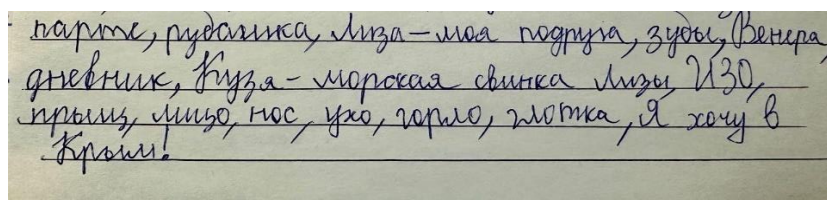 парте, рубашка, Лиза – моя подруга, зубы, Венера,
дневник, Кузя – морская свинка Лизы, ИЗО,
прыщ, лицо, нос, ухо, горло, глотка, Я хочу в
Крым!